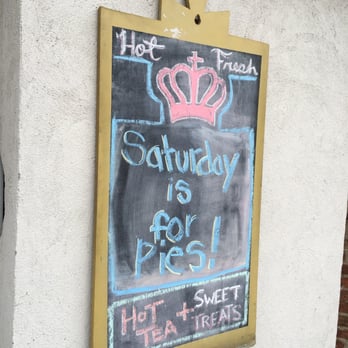 Hot Fresh
Saturday
is
for
Pies!
HOT TEA + SWEET TREATS